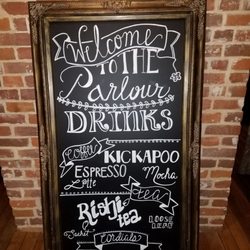 Welcome
TO THE
Parlour
DRINKS
Coffee
KICKAPOO
ESPRESSO
Mocha
Latte
tea
Rishi
tea
LOOSE
Sachet
LEAF
Cordials